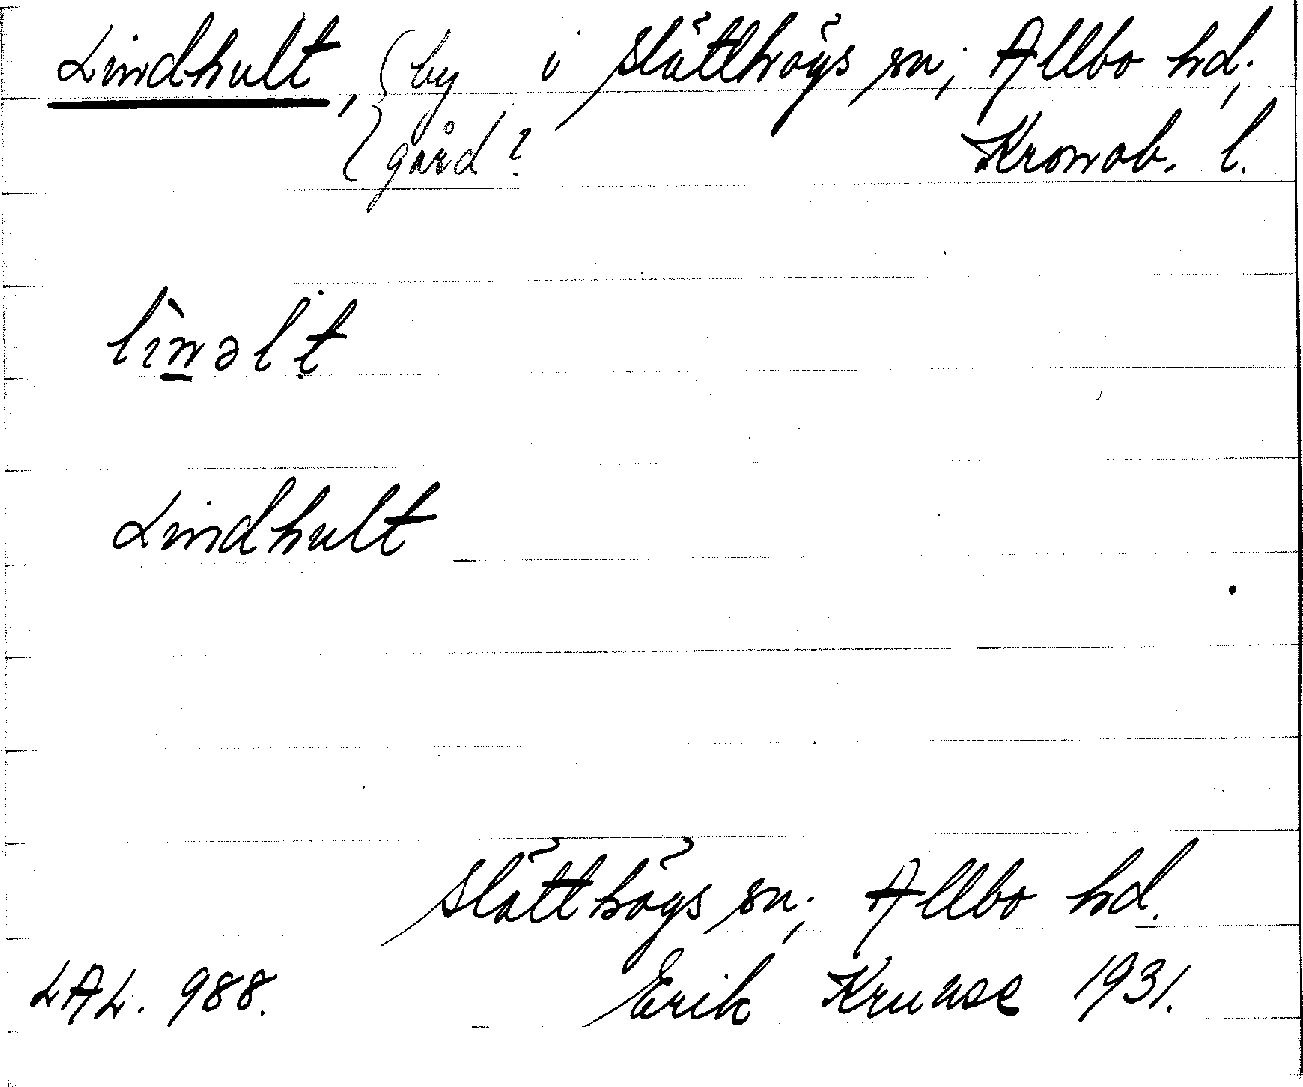 Lindhult, (by i Slätthögs sn; Allbo hd;
{gård? Kronob. l.
lìnəlt
Lindhult
Slätthögs sn; Allbo hd.
LAL. 988. Erik Kruuse 1931.